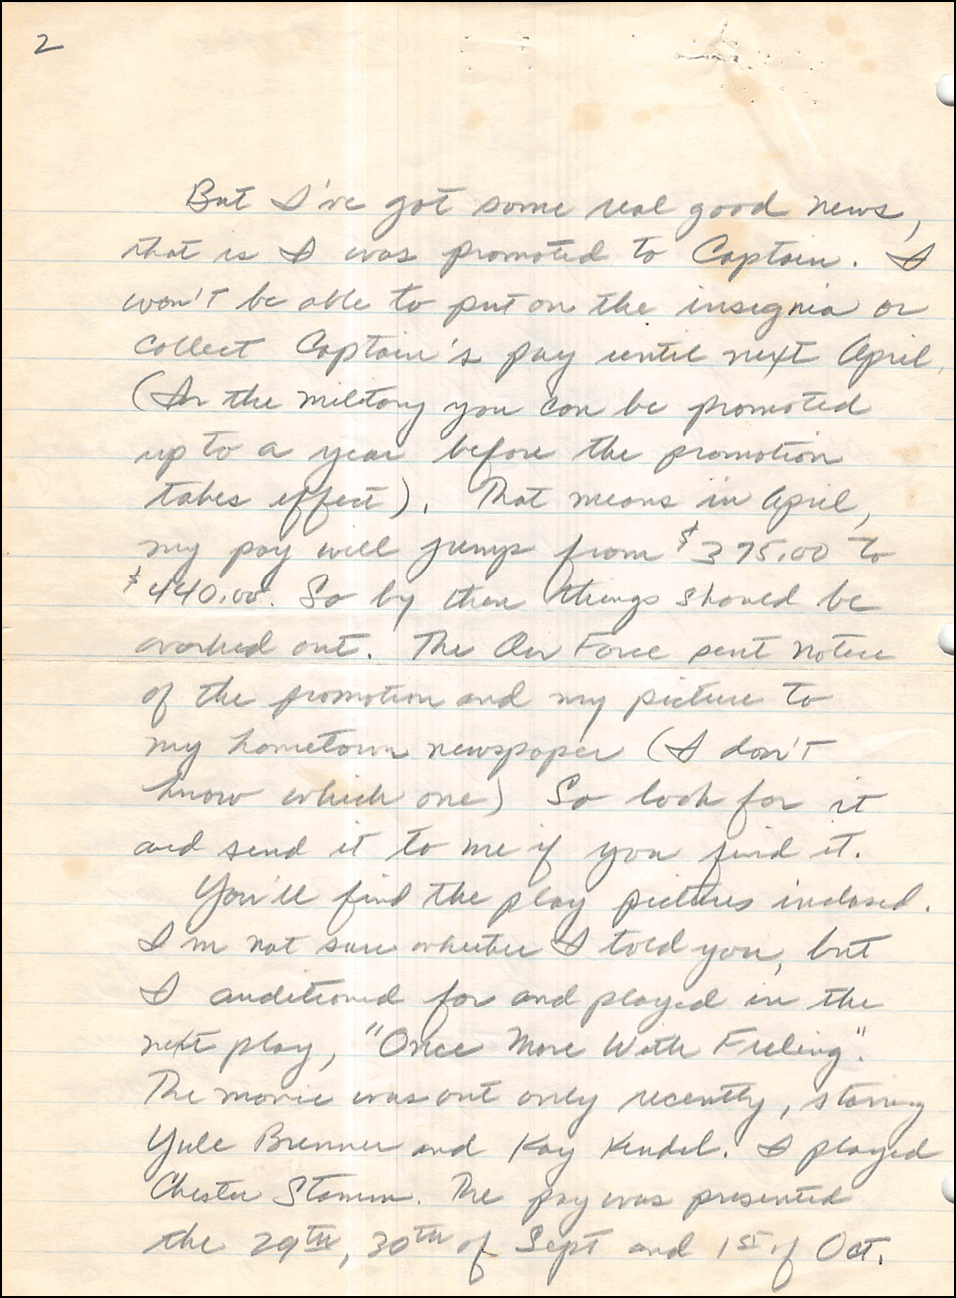 2
But I've got some real good news,
that is I was promoted to Captain. I
won't be able to put on the insignia or
collect Captain's pay until next April.
(In the military you can be promoted
up to a year before the promotion
takes effect). That means in April,
my pay will jump from $375.00 to
$440.00. So by then things should be
worked out. The Air Force sent notice
of the promotion and my picture to
my hometown newspaper (I don't
know which one) So look for it
and send it to me if you find it.
You'll find the play pictures inclosed.
I'm not sure whether I told you, but
I auditioned for and played in the
next play, "Once More With Feeling".
The movie was out only recently, starring
Yule Brenner and Kay Kendel. I played
Chester Stamm. The pay was presented
the 29th, 30th of Sept and 1st of Oct.